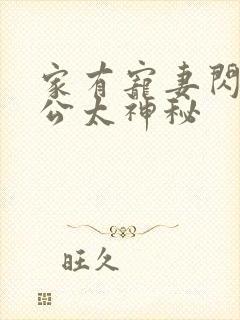 家有寵妻閃
公太神秘
旺久